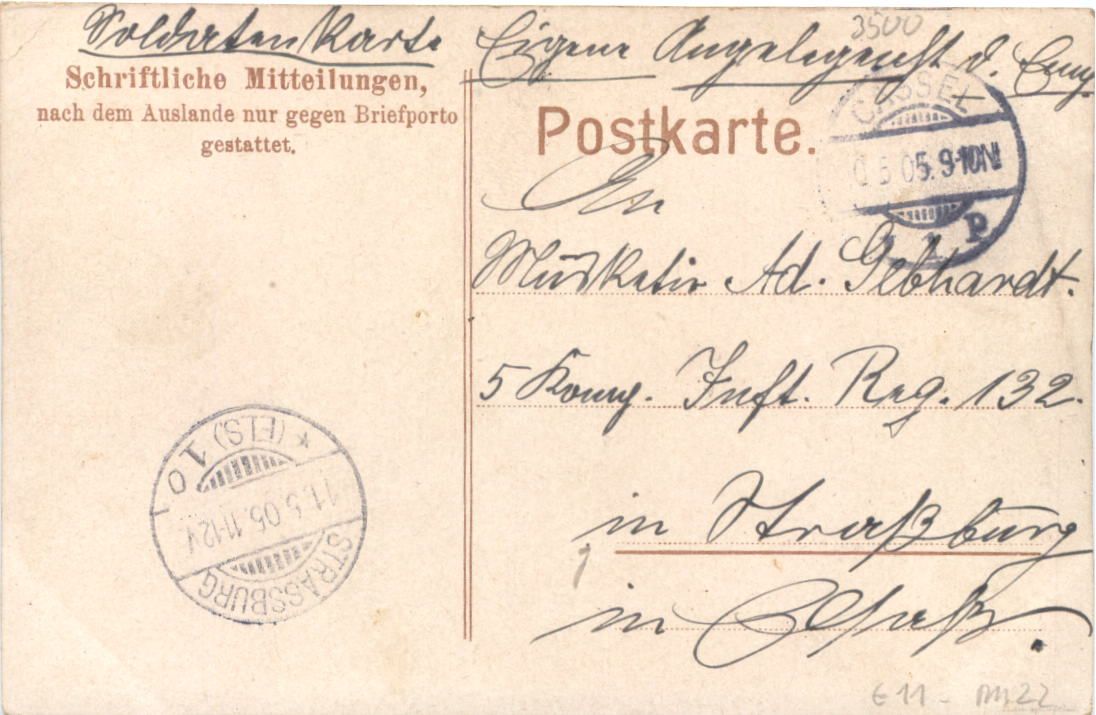 Soldatenkarte Eigene Angelegenht d. Empf.
3500
Schriftliche Mitteilungen,
nach dem Auslande nur gegen Briefporto
gestattet.
Postkarte.
CASSEL
5 05. 9-10N
1 P
An
Musketir Ad. Gebhardt.
5 Komp. Inft. Reg. 132.
in Straßburg
in Elsaß.
STRASSBURG
11.5.05.11-12V.
* (ELS) 10.